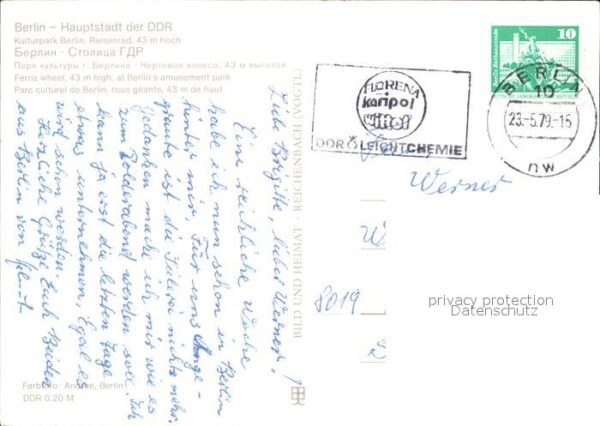 Berlin – Hauptstadt der DDR
Kulturpark Berlin, Riesenrad, 43 m hoch
Берлин - Столица ГДР
Парк культуры г. Берлина · Чертовое колесо, 43 м высотой
Ferris wheel, 43 m high, at Berlin's amusement park
Parc culturel de Berlin, roue géante, 43 m de haut
10
FLORENA
kontpol
DDR LEICHTCHEMIE
BERLIN
10
23.-5.79.-15
nw
Liebe Brigitte, lieber Werner!
Eine reichliche Woche
habe ich nun schon in Berlin
hinter mir. Für uns
ist die nichts mehr.
Gedanken mache ich mir wie es
zum Polterabend werden soll. Ich
kann ja erst die letzten Tage
etwas unternehmen. Egal es
wird schon werden.
Herzliche Grüße Euch Beiden
aus Berlin von
BILD UND HEIMAT · REICHENBACH (VOGTL)
Werner
W
8019
privacy protection
Datenschutz
Farbfoto: Andree, Berlin
DDR 0,20 M